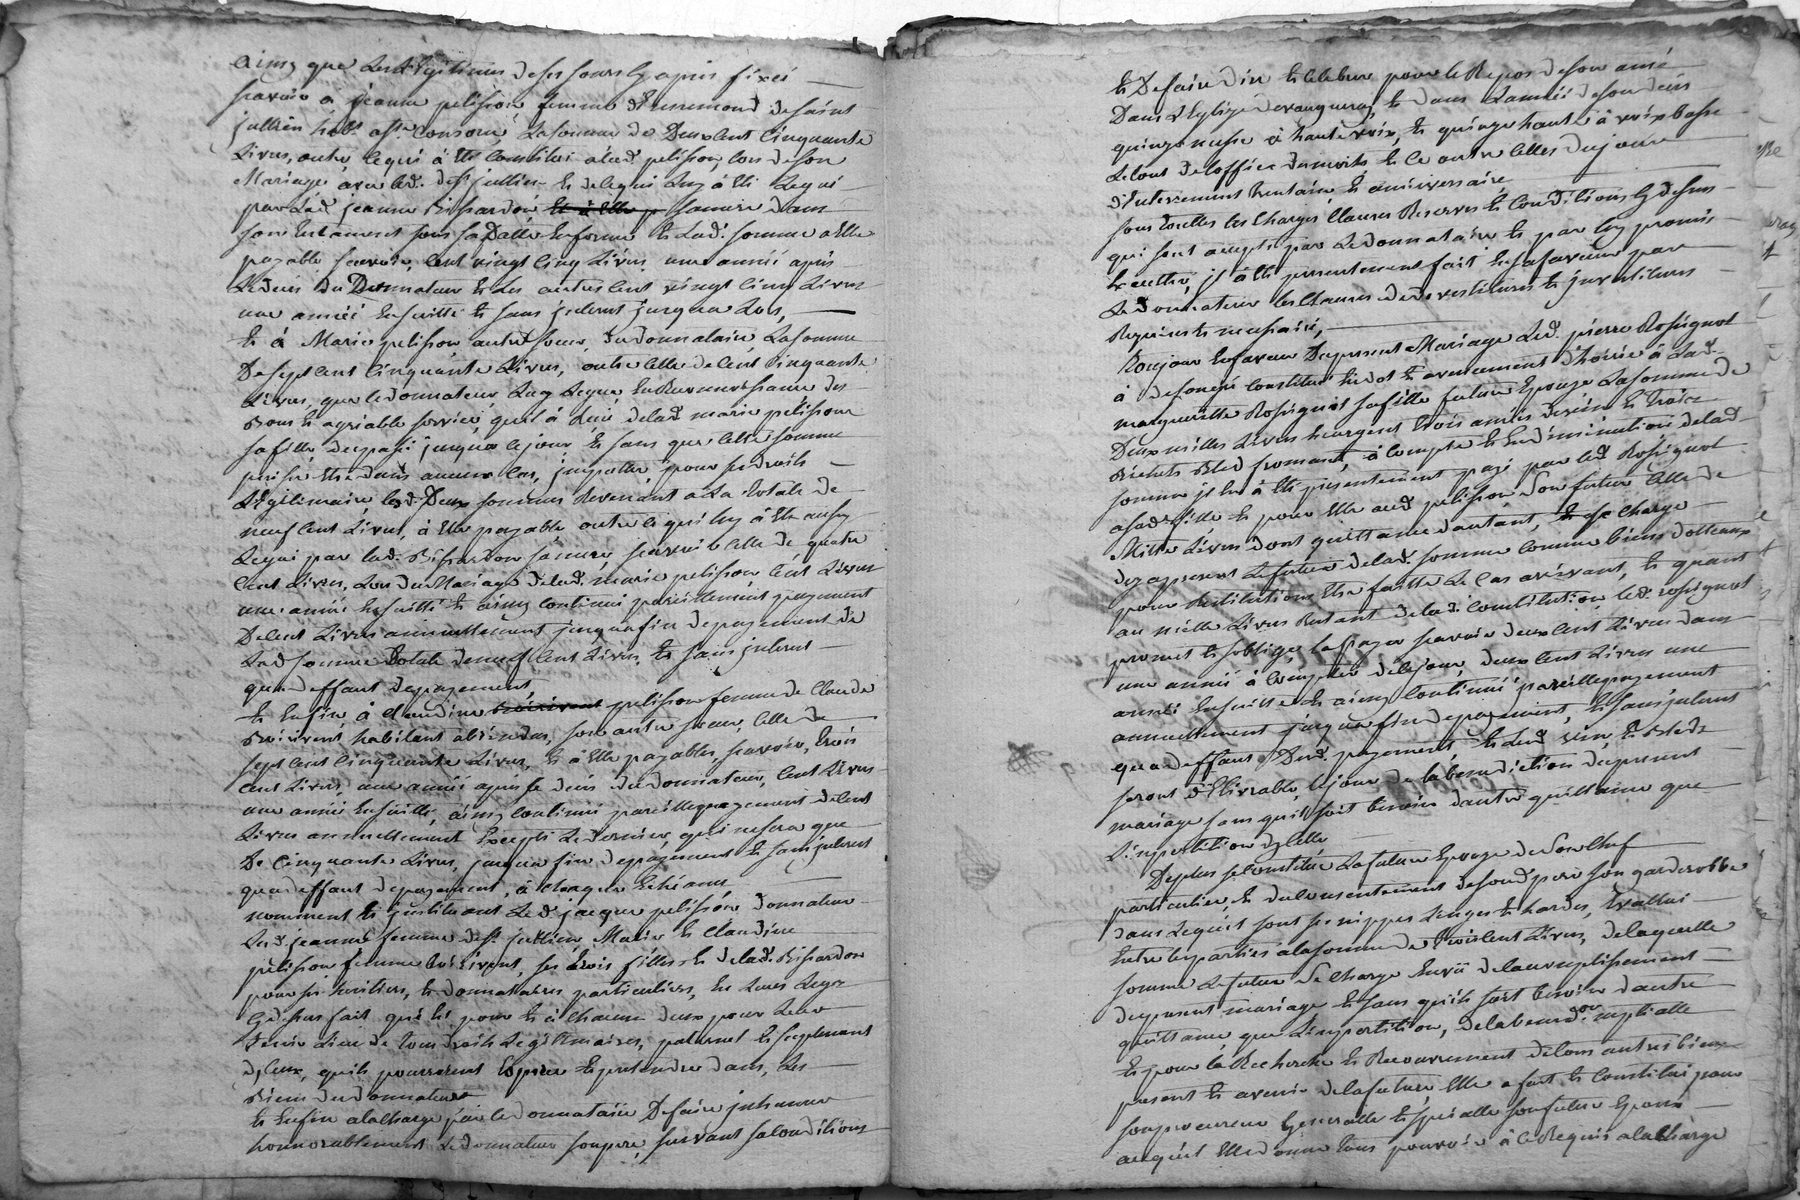 ainsy que les Legitimes de ses soeurs cy apres fixés
scavoir a jeanne pelisson femme d' de saint
jullien son consorié, La somme de Deux Cent Cinquante
Livres, outre ce qui à été constitué à lad. pelisson, lors de son
Mariage avec led. de st jullien et de ce qui luy à été Legué
par Lad. jeanne Bissardon et à elle sa mere dans
son testament sous sa Datte En forme et Lad. somme a elle
payable scavoir, Cent vingt Cinq Livres une année apres
Le deces du Donnateur et Les autres Cent vingt Cinq Livres
une année Ensuitte et sans interest jusqu'a Lors,
Et à Marie pelisson autre soeur du donnataire La somme
De sept Cent Cinquante Livres, outre Celle de Cent Cinquante
Livres, que le donnateur Luy Legue En Reconnoissance des
Bons et agreable service qu'il à de lad. marie pelisson
sa fille du passé jusqua ce jour, et sans que Cette somme
puisse etre dans aucun Cas, imputtée pour ses droits
Legitimaire, lesd. Deux sommes Revenant a La totale de
neuf Cent Livres, à Elle payable outre ce qui luy à été aussy
Legué par lad. Bissardon sa mere, scavoir celle de quatre
Cent Livres, Lors du Mariage de lad. marie pelisson, Cent Livres
une année Ensuitte et ainsy continué pareillement payement
De Cent Livres annuellement jusqu'a fin de payement de
Lad. somme totale de neuf Cent Livres, et sans interest
qua deffaut de payement,
Et Enfin à Claudine pelisson femme de Claude
habitant, son autre soeur, Celle de
sept Cent Cinquante Livres, et à Elle payables, scavoir, trois
Cent Livres, une année apres le deces du donnateur, Cent Livres
une année Ensuitte, ainsy continué pareille payement de Cent
Livres annuellement Excepté Le dernier, qui ne sera que
De Cinquante Livres, jusqu'a fin de payement et sans interest
qu'a deffaut de payement, à chaque Echéance
nommant et instituant Led. jacque pelisson donnateur
Lesd. jeanne femme de st jullien, Marie et Claudine
pelisson femme, ses trois filles et de lad. Bissardon
pour ses heritiers, et donnataires particulieres, En Leurs Legs
Cy dessus fait, qu'il et pour et à Chacune deux pour Leur
tenir Lieu de tous droits Legitimaires, paternel et suplement
d'yceux, qu'ils pourroient Esperer et pretendre dans, Les
Biens du donnateur
Et Enfin a la charge par le donnataire De faire inhumer
honnorablement Le donnateur son pere, suivant sa Conditions
Et De faire dire et Celebrer pour le Repos de son ame
Dans L'Eglise de et dans L'année de son deces
quinze messe à haute voix, et quinze hautre à voix basse
Le tout de loffice des morts et ce outre Celles du jour
d'Enterrement trentaine et anniversaire
sous toutes les Charges, Clauses Reserves et Conditions Cy dessus
qui sont accepté par Le donnataire et par luy promis
Executter, il à été presentement fait En sa faveur par
Le donnateur les Clauses de devestitures et investitures
Requises et necessaire,
Toujour En faveur Du present Mariage Led. pierre Rossignol
à de son gré constitué En dot et avencement d'hoirie à Lad.
marguerite Rossignol sa fille future Epouze La somme de
Deux milles Livres
Bichets Bled froment, à Compte et En diminution de lad.
somme il En à été presentement payé par led. Rossignol
a sad. fille et pour Elle aud. pelisson son futur Celle de
Mille Livres dont quittance d'autant, et se Charge
des apresent Le futur de lad. somme comme biens dotteaux
pour Restitution En être faitte Le Cas arrivant, et quant
au mille Livres Restant de lad. Constitution led. rossignol
promet et s'oblige la payer scavoir deux Cent Livres dans
une année à Compter de ce jour, deux Cent Livres une
année Ensuitte et ainsy Continué pareille payement
annuellement jusqu'a fin de payement, et sans interest
qu'a deffaut Dud. payement et Led. et Bleds
seront délivrable, le jour de la benediction du present
mariage sans qu'il soit besoin d'autre quittance que
L'inpartition d'ycelle
Deplus se constitue La future Epouze de son Chef
particulier, et du Consentement de sond. pere son garderobbe
dans Lequel sont ses nippes Linges et hardes, Evallué
Entre les parties a la somme de trois Cent Livres, de laquelle
somme Le futur se Charge En vüe de l'accomplissement
du present mariage et sans qu'il soit besoin d'autre
quittance, que L'inpartition, de la bened.on nuptialle
Et pour la Recherche et Recouvrement de tous autres bien
present et avenir de la future, Elle a fait et Constitué pour
son procureur generalle et spécialle son futur Epoux
auquel Elle donne tous pouvoir à ce Requis a la charge